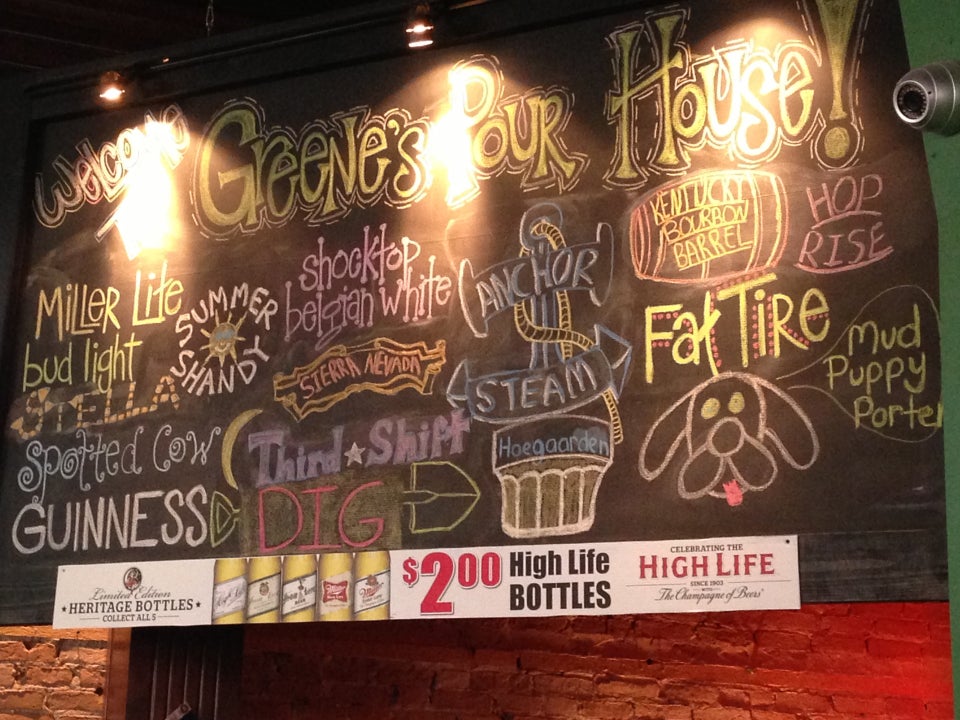 Welcome To
GREENE'S POUR HOUSE!
MILLER LITE
bud light
STELLA
Spotted Cow
GUINNESS
SUMMER
SHANDY
shocktop
belgian white
SIERRA NEVADA
Third Shift
DIG
ANCHOR
STEAM
Hoegaarden
KENTUCKY
BOURBON
BARREL
HOP
RISE
Fat Tire
Mud
Puppy
Porter
Limited Edition
HERITAGE BOTTLES
COLLECT ALL 5
$2.00
High Life
BOTTLES
CELEBRATING THE
HIGH LIFE
SINCE 1903
WITH
The Champagne of Beers